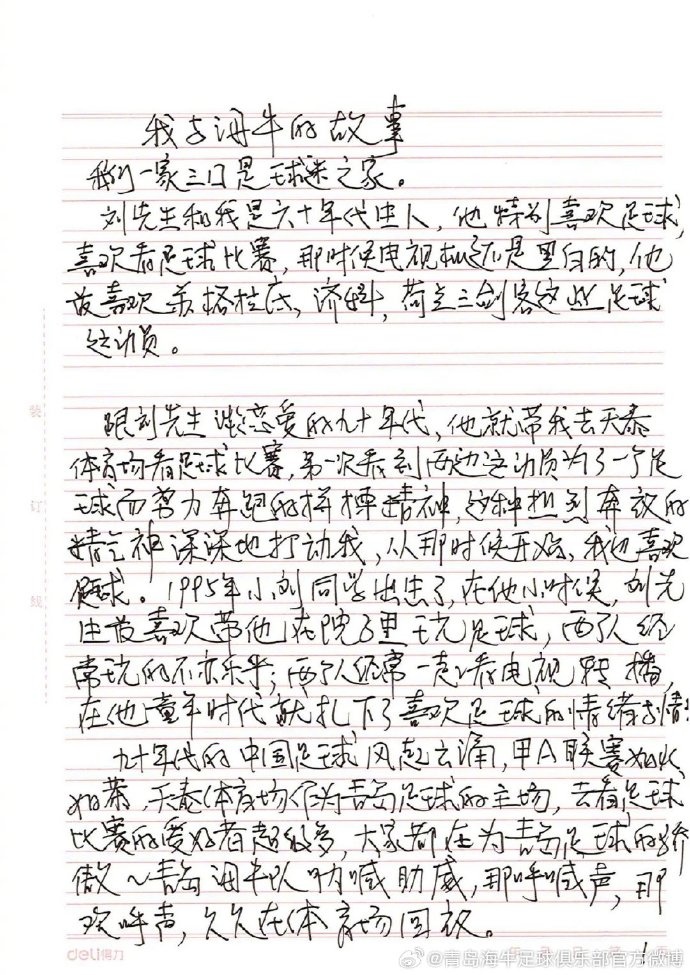 我与海牛的故事
我们一家三口是球迷之家。
刘先生和我是六十年代生人，他特别喜欢足球，
喜欢看足球比赛，那时候电视机还是黑白的，他
最喜欢苏格拉底、济科，荷兰三剑客这些足球
运动员。
跟刘先生谈恋爱的九十年代，他就带我去天泰
体育场看足球比赛，第一次看到两边运动员为了一个足
球而努力奔跑的拼搏精神，这种热烈奔放的
精气神深深地打动我，从那时候开始，我也喜欢
足球。1995年小刘同学出生了，在他小时候，刘先
生最喜欢带他在院子里玩足球，两个人经
常玩的不亦乐乎；两个人经常一起看电视转播，
在他童年时代就扎下了喜欢足球的情绪与情
九十年代的中国足球风起云涌，甲A联赛如火
如荼，天泰体育场作为青岛足球的主场，去看足球
比赛的爱好者超级多，大家都在为青岛足球的骄
傲～青岛海牛队呐喊助威，那呼喊声，那
欢呼声，久久在体育场回放。
装
订
线
deli得力
1
@青岛海牛足球俱乐部官方微博